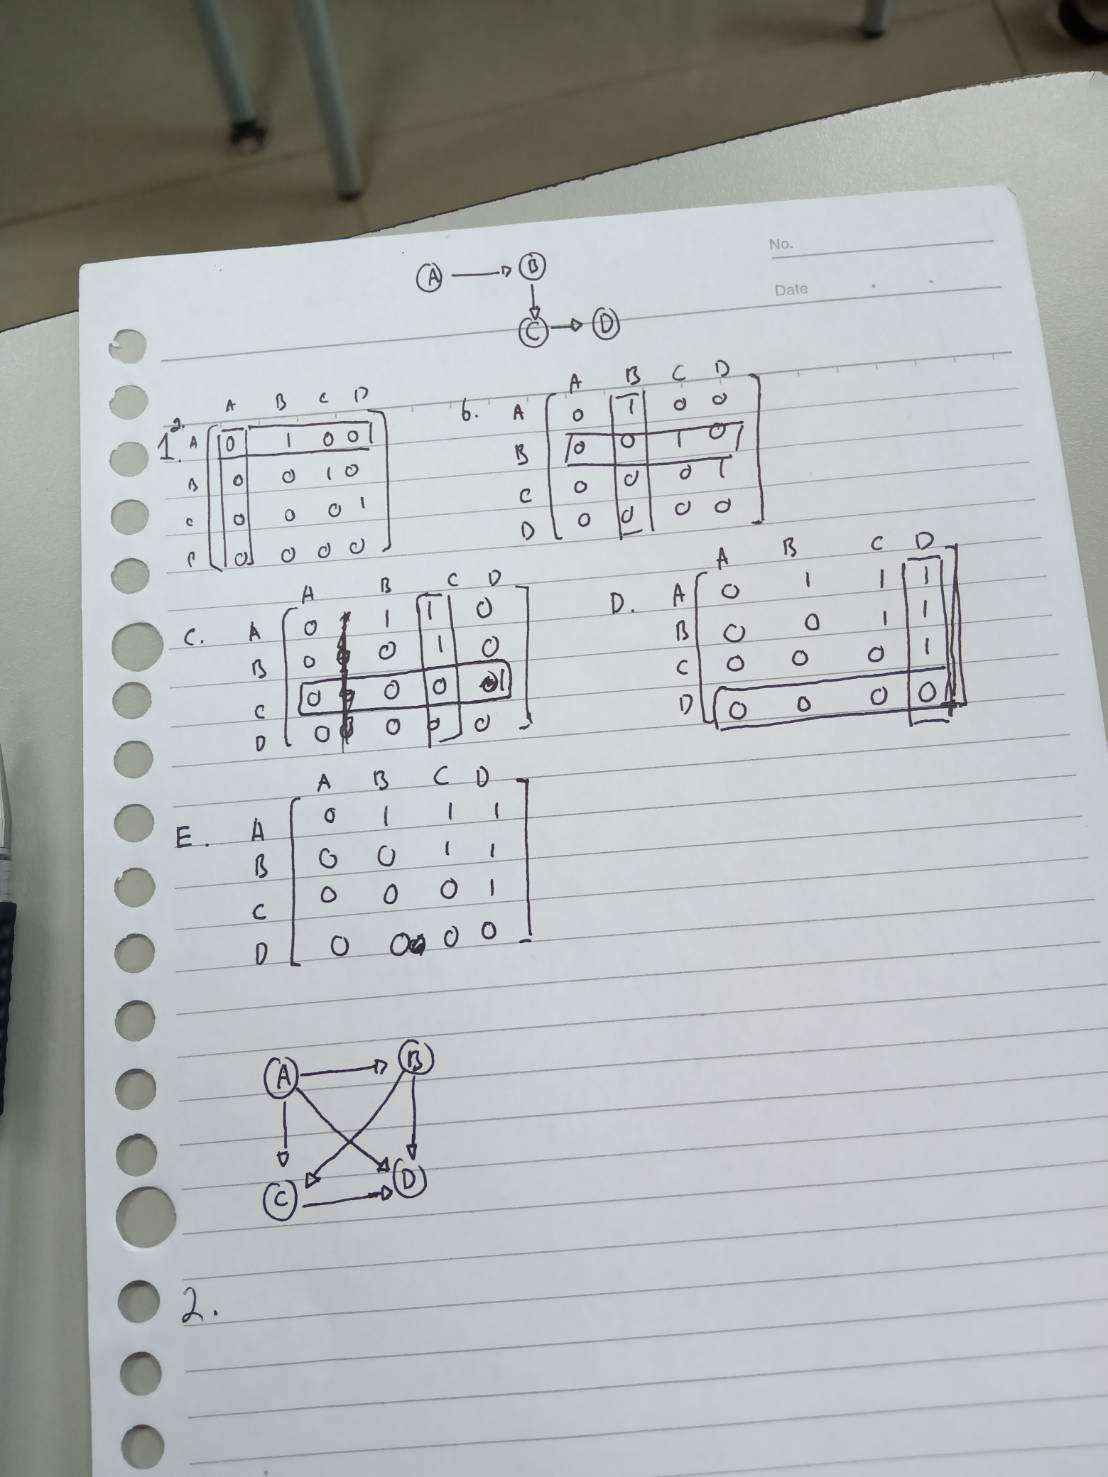 No.
Date
A B
C D
A B C D
1a. A 0 1 0 0
B 0 0 1 0
C 0 0 0 1
D 0 0 0 0
A B C D
b. A 0 1 0 0
B 0 0 1 0
C 0 0 0 1
D 0 0 0 0
A B C D
C. A 0 1 1 0
B 0 0 1 0
C 0 0 0 1
D 0 0 0 0
A B C D
D. A 0 1 1 1
B 0 0 1 1
C 0 0 0 1
D 0 0 0 0
A B C D
E. A 0 1 1 1
B 0 0 1 1
C 0 0 0 1
D 0 0 0 0
A B
C D
2.